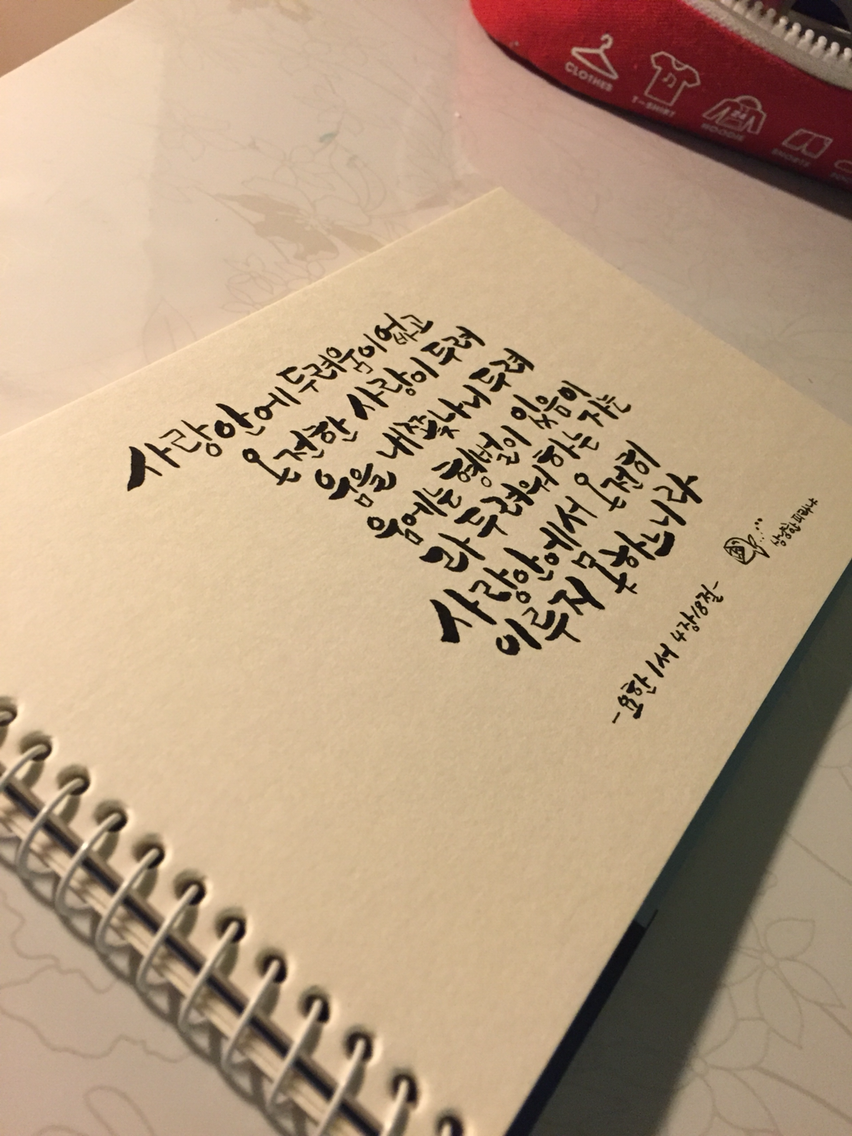 CLOTHES
T-SHIRT
HOODIE
SHORTS
사랑안에 두려움이 없고
온전한 사랑이 두려
움을 내쫓나니 두려
움에는 형벌이 있음이
라 두려워하는 자는
사랑안에서 온전히
이루지 못하느니라
-요한1서 4장18절-